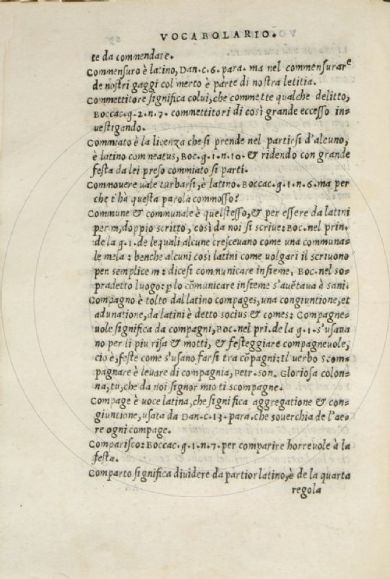 VOCABOLARIO.
te da commendare.
Commensuro è latino, Dan. c. 6. para. ma nel commensurare
de nostri gaggi col merto è parte di nostra letitia.
Commettitore significa colui, che commette qualche delitto,
Boccac. g. 2. n. 7. commettitori di così grande eccesso in
vestigando.
Commiato è la licenza che si prende nel partirsi d'alcuno,
è latino commeatus, Boc. g. 1. n. 10. & ridendo con gran
festa da lei preso commiato si parti.
Commovere uale turbarsi, è latino. Boccac. g. 1. n. 6. ma per
che t'hà questa parola commosso?
Commune & communale è quelstesso, & per essere da latini
per m, doppio scritto, così da noi si scriue: Boc. nel prin.
de la g. 1. de lequali alcune cresceuano come una communa
le mela: benche alcuni così latini come uolgari il scriuono
per semplice m: dicesi communicare insieme, Boc. nel so-
pradetto luogo: p lo cōmunicare insieme s'auetaua è sani.
Compagno è tolto dal latino compages, una congiuntione, et
adunatione, da latini è detto socius & comes: Compagne-
uole significa da compagni, Boc. nel pri. de la g. 1. s'usaua
no per li piu risa & motti, & festeggiare compagneuole,
cio è, feste come s'usano farsi tra cōpagni: Il uerbo Scom-
pagnare è leuare di compagnia, Petr. son. Gloriosa colon-
na, tu, che da noi signor mio ti scompagne.
Compage è uoce latina, che significa aggregatione & con-
giuntione, usata da Dan. c. 13. para. che souerchia de l'ae-
re ogni compage.
Comparisco: Boccac. g. 1. n. 7. per comparire horreuole à la
festa.
Comparto significa diuidere da partior latino, è de la quarta
regola